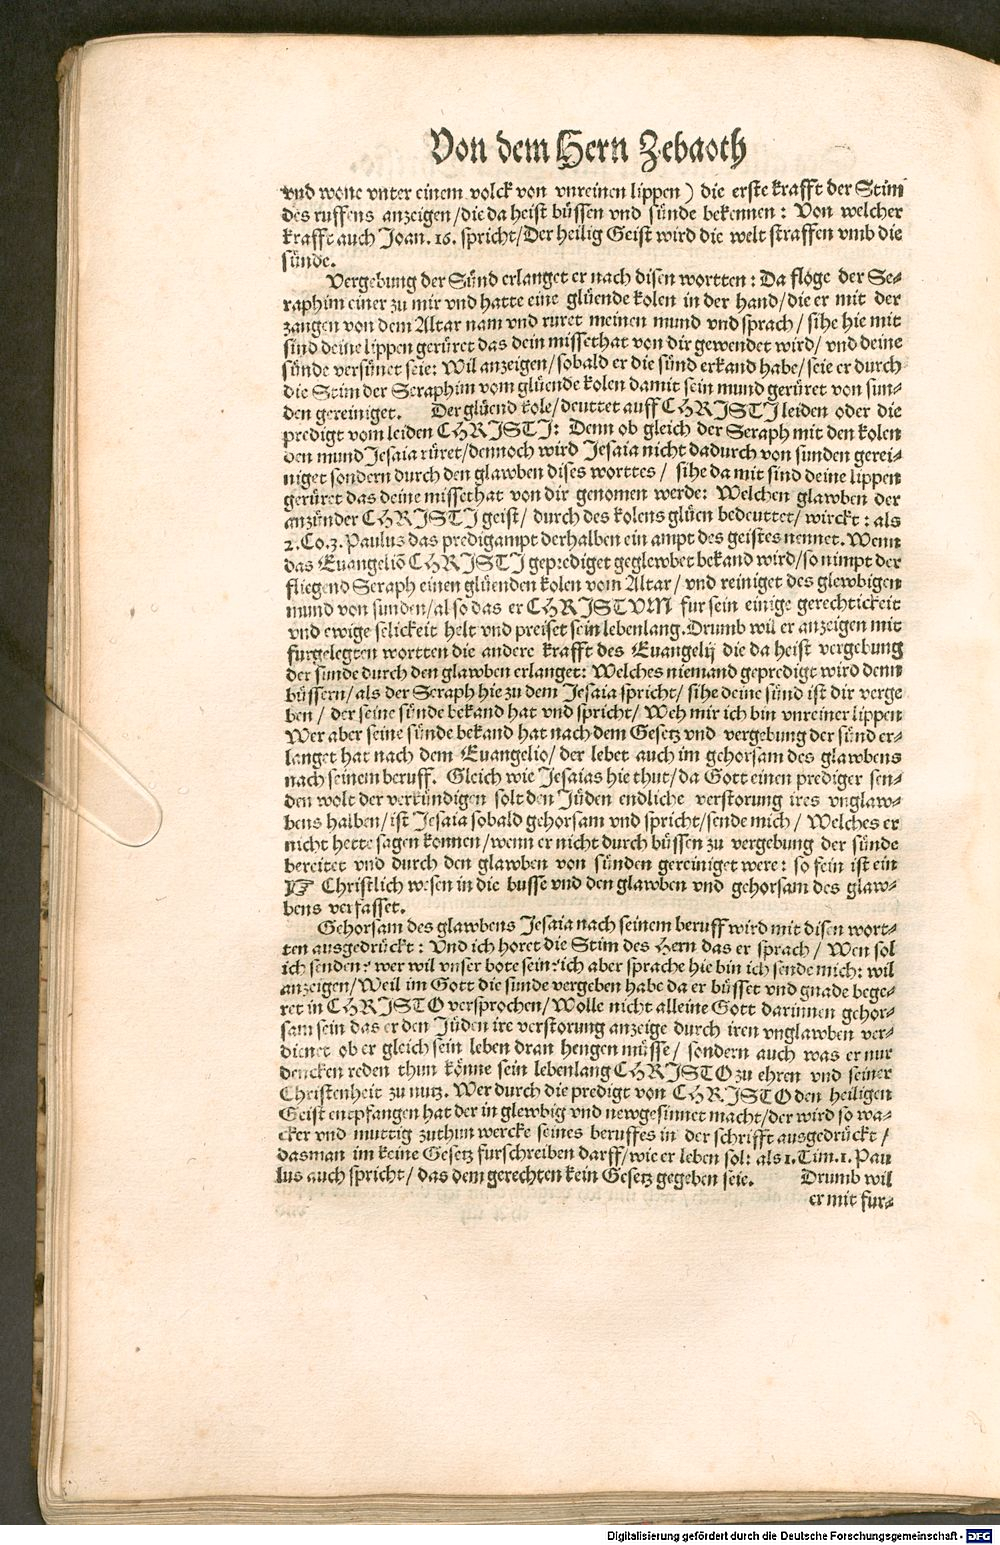 Von dem Hern Zebaoth
vnd wone vnter einem volck von vnreinen lippen) die erste krafft der Stim
des ruffens anzeigen/die da heist büssen vnd sünde bekennen: Von welcher
krafft auch Joan. 16. spricht/Der heilig Geist wird die welt straffen vmb die
sünde.
Vergebung der Sünd erlanget er nach disen wortten: Da flöge der Se-
raphim einer zu mir vnd hatte eine glüende kolen in der hand/die er mit der
zangen von dem Altar nam vnd ruret meinen mund vnd sprach/ sihe hie mit
sind deine lippen gerüret das dein missethat von dir gewendet wird/ vnd deine
sünde versünet seie: Wil anzeigen/sobald er die sünd erkand habe/seie er durch
die Stim der Seraphim vom glüende kolen damit sein mund gerüret von sun-
den gereiniget. Der glüend kole/deuttet auff CHRISTI leiden oder die
predigt vom leiden CHRISTI: Denn ob gleich der Seraph mit den kolen
den mund Jesaia rüret/dennoch wird Jesaia nicht dadurch von sunden gerei-
niget sondern durch den glawben dises worttes/ sihe da mit sind deine lippen
gerüret das deine missethat von dir genomen werde: Welchen glawben der
anzünder CHRISTI geist/ durch des kolens glüen bedeuttet/ wirckt: als
2. Co. 3. Paulus das predigampt derhalben ein ampt des geistes nennet. Wenn
das Euangeliō CHRISTI geprediget geglewbet bekand wird/so nimpt der
fliegend Seraph einen glüenden kolen vom Altar/ vnd reiniget des glewbigen
mund von sunden/also das er CHRISTVM fur sein einige gerechtickeit
vnd ewige selickeit helt vnd preiset sein lebenlang. Drumb wil er anzeigen mit
furgelegten wortten die andere krafft des Euangelij die da heist vergebung
der sunde durch den glawben erlanget: Welches niemand gepredigt wird denn
büssern/als der Seraph hie zu dem Jesaia spricht/ sihe deine sünd ist dir verge
ben/ der seine sünde bekand hat vnd spricht/ Weh mir ich bin vnreiner lippen
Wer aber seine sünde bekand hat nach dem Gesetz vnd vergebung der sünd er-
langet hat nach dem Euangelio/ der lebet auch im gehorsam des glawbens
nach seinem beruff. Gleich wie Jesaias hie thut/da Gott einen prediger sen-
den wolt der verkündigen solt den Jüden endliche verstorung ires vnglaw-
bens halben/ist Jesaia sobald gehorsam vnd spricht/sende mich/ Welches er
nicht hette sagen konnen/wenn er nicht durch büssen zu vergebung der sünde
bereitet vnd durch den glawben von sünden gereiniget were: so fein ist ein
☞ Christlich wesen in die busse vnd den glawben vnd gehorsam des glaw-
bens verfasset.
Gehorsam des glawbens Jesaia nach seinem beruff wird mit disen wort-
ten ausgedrückt: Vnd ich horet die Stim des Hern das er sprach/ Wen sol
ich senden? wer wil vnser bote sein? ich aber sprache hie bin ich sende mich: wil
anzeigen/Weil im Gott die sunde vergeben habe da er büsset vnd gnade bege-
ret in CHRISTO versprochen/Wolle nicht alleine Gott darinnen gehor-
sam sein das er den Jüden ire verstorung anzeige durch iren vnglawben ver-
dienet ob er gleich sein leben dran hengen müsse/ sondern auch was er nur
dencken reden thun könne sein lebenlang CHRISTO zu ehren vnd seiner
Christenheit zu nutz. Wer durch die predigt von CHRISTO den heiligen
Geist entpfangen hat der in glewbig vnd newgesinnet macht/der wird so wa-
cker vnd muttig zuthun wercke seines beruffes in der schrifft ausgedrückt/
dasman im keine Gesetz furschreiben darff/wie er leben sol: als 1. Tim. 1. Pau
lus auch spricht/ das dem gerechten kein Gesetz gegeben seie. Drumb wil
er mit fur-
Digitalisierung gefördert durch die Deutsche Forschungsgemeinschaft - DFG